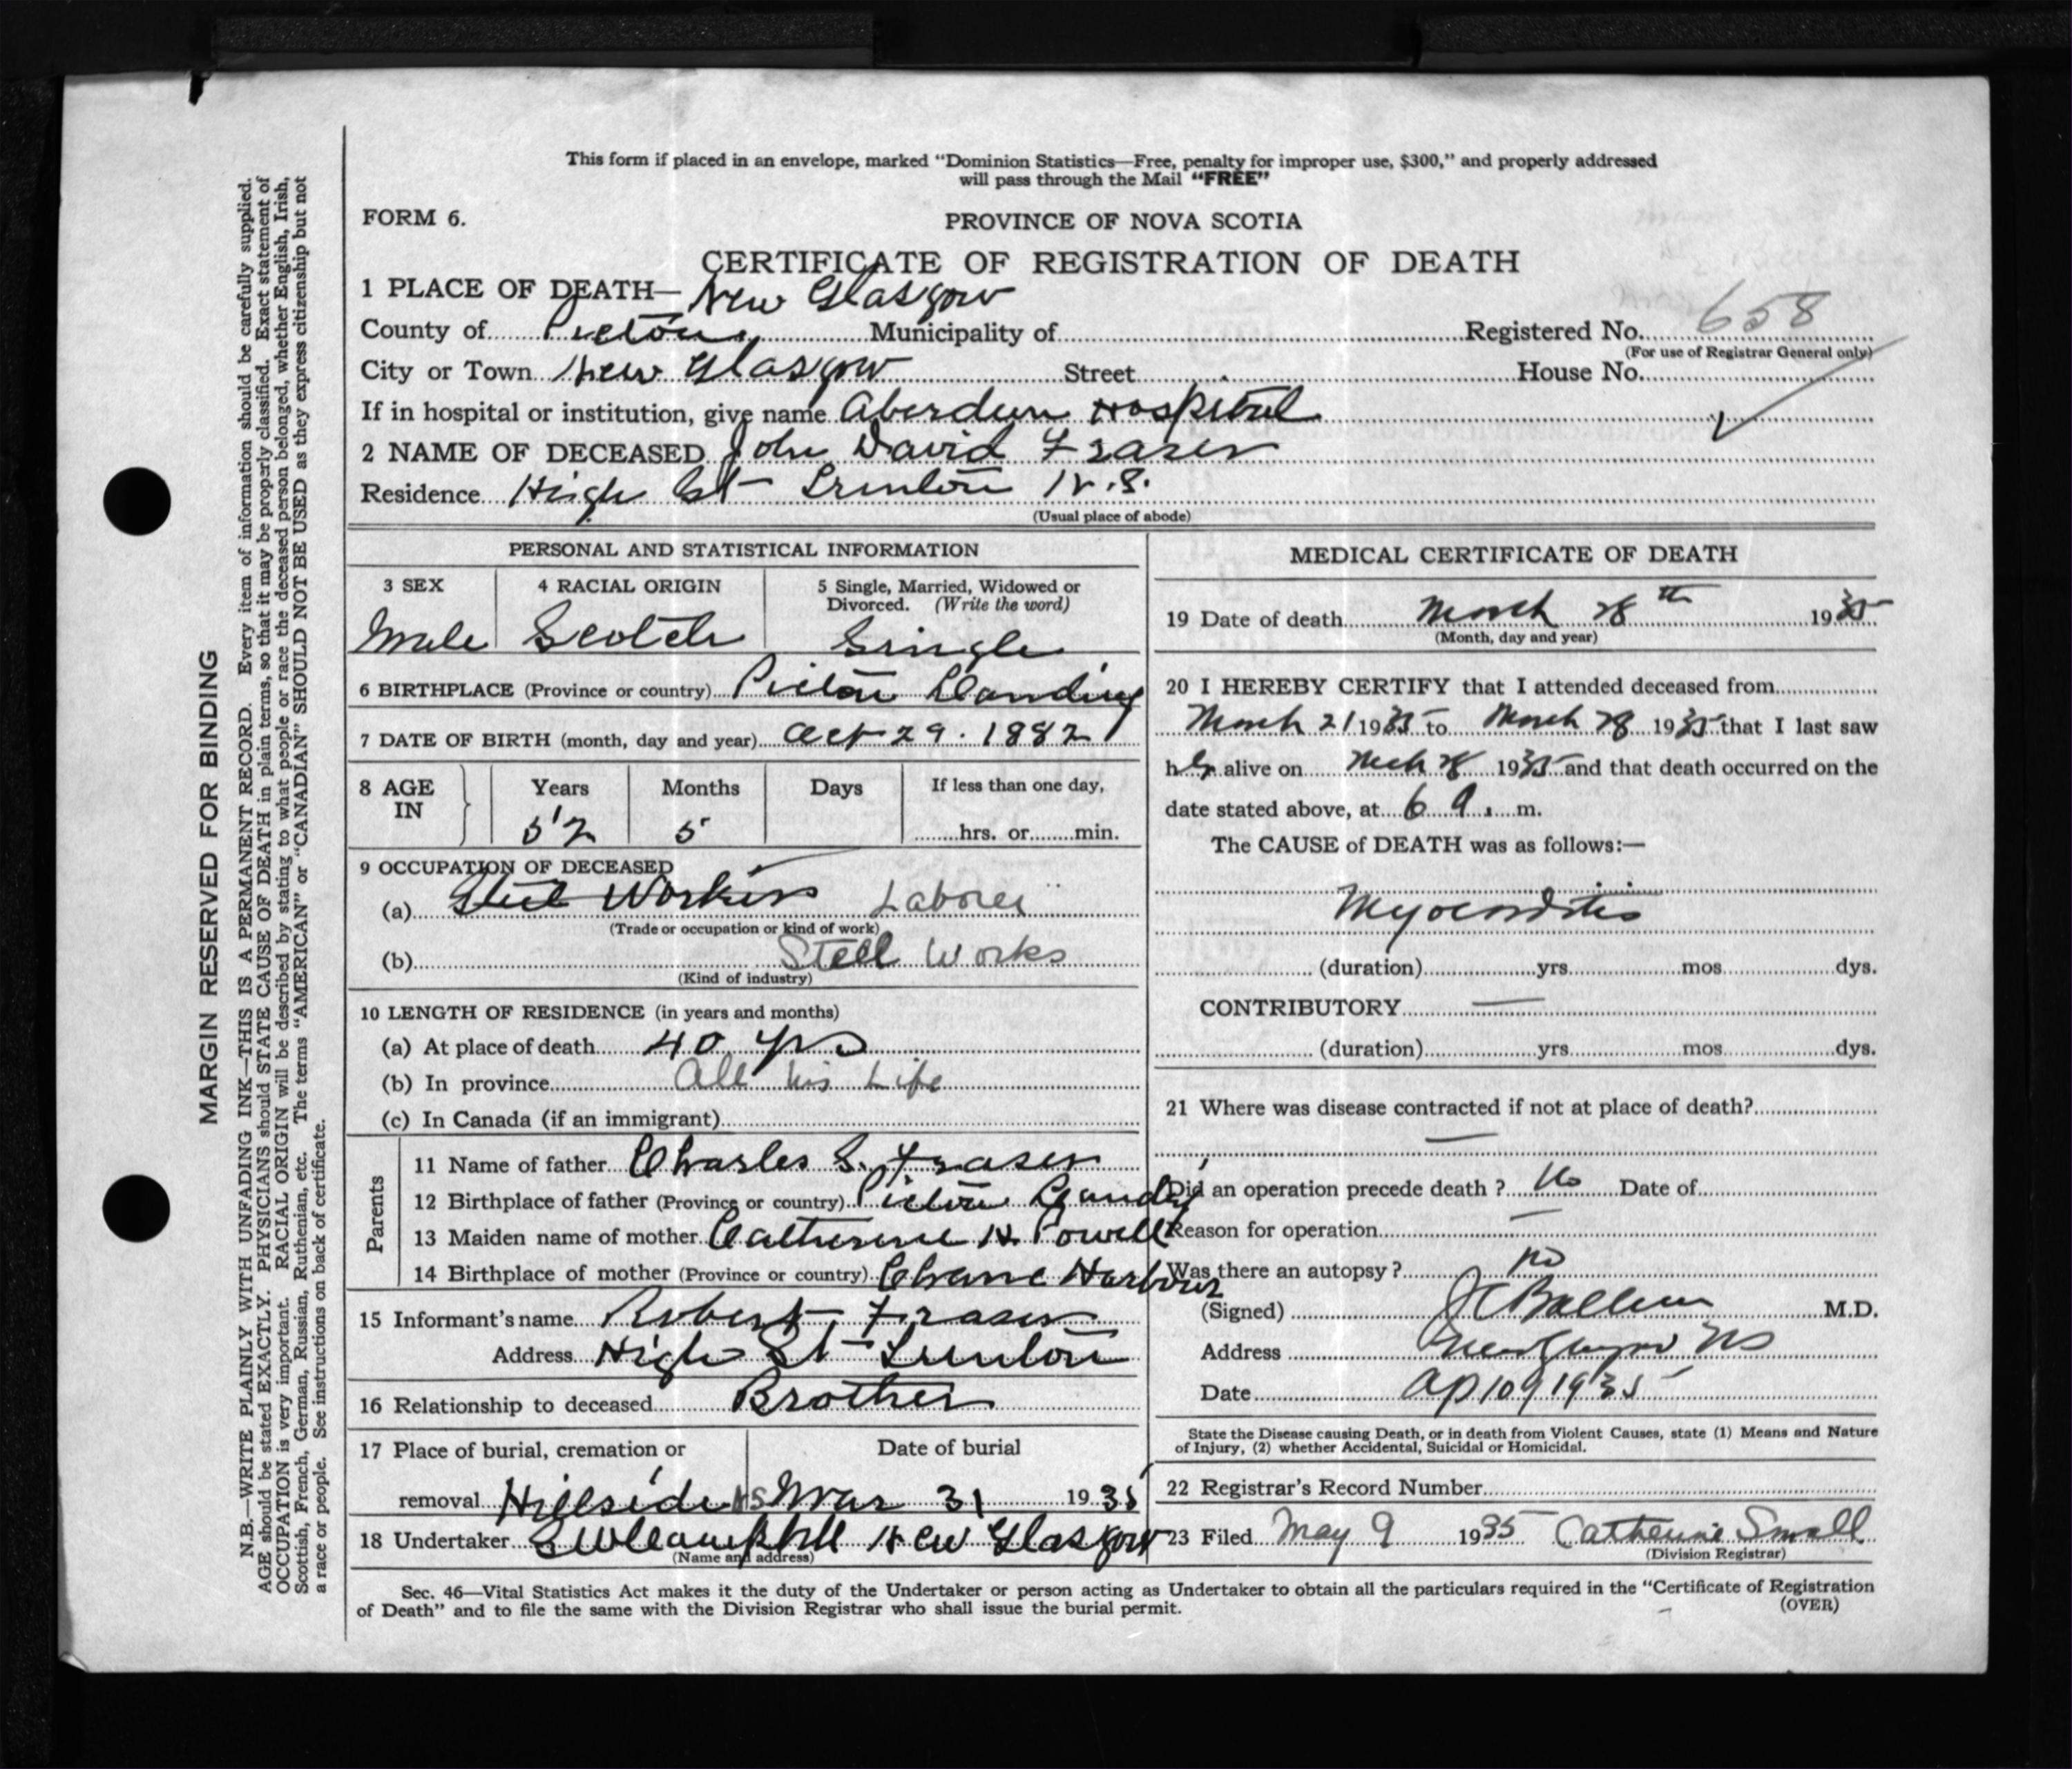 This form if placed in an envelope, marked “Dominion Statistics—Free, penalty for improper use, $300,” and properly addressed
will pass through the Mail “FREE”
FORM 6.
PROVINCE OF NOVA SCOTIA
CERTIFICATE OF REGISTRATION OF DEATH
1 PLACE OF DEATH— New Glasgow
County of Pictou Municipality of Registered No. 658
(For use of Registrar General only)
City or Town New Glasgow Street House No.
If in hospital or institution, give name Aberdeen Hospital
2 NAME OF DECEASED John David Fraser
Residence High St Trenton N.S.
(Usual place of abode)
PERSONAL AND STATISTICAL INFORMATION
3 SEX 4 RACIAL ORIGIN 5 Single, Married, Widowed or
Divorced. (Write the word)
Male Scotch Single
6 BIRTHPLACE (Province or country) Pictou Landing
7 DATE OF BIRTH (month, day and year) Oct 29. 1882
8 AGE IN Years Months Days If less than one day,
52 5 hrs. or min.
9 OCCUPATION OF DECEASED
(a) Steel Workers Laborer
(Trade or occupation or kind of work)
(b) Stell Works
(Kind of industry)
10 LENGTH OF RESIDENCE (in years and months)
(a) At place of death 40 yrs
(b) In province all his Life
(c) In Canada (if an immigrant)
Parents
11 Name of father Charles S. Fraser
12 Birthplace of father (Province or country) Pictou Landing
13 Maiden name of mother Catherine H. Powell
14 Birthplace of mother (Province or country) Harbour
15 Informant's name Robert Fraser
Address High St Trenton
16 Relationship to deceased Brother
17 Place of burial, cremation or Date of burial
removal Hillside NS Mar 31 1935
18 Undertaker New Glasgow
(Name and address)
MEDICAL CERTIFICATE OF DEATH
19 Date of death March 28th 1935
(Month, day and year)
20 I HEREBY CERTIFY that I attended deceased from
March 21 1935 to March 28 1935 that I last saw
h alive on Mch 28 1935 and that death occurred on the
date stated above, at 6 a. m.
The CAUSE of DEATH was as follows:—
Myocarditis
(duration) yrs. mos. dys.
CONTRIBUTORY —
(duration) yrs. mos. dys.
21 Where was disease contracted if not at place of death?
—
Did an operation precede death? No Date of
Reason for operation —
Was there an autopsy? no
(Signed) M.D.
Address New Glasgow NS
Date 1935
State the Disease causing Death, or in death from Violent Causes, state (1) Means and Nature
of Injury, (2) whether Accidental, Suicidal or Homicidal.
22 Registrar's Record Number
23 Filed May 9 1935 Catherine Small
(Division Registrar)
Sec. 46—Vital Statistics Act makes it the duty of the Undertaker or person acting as Undertaker to obtain all the particulars required in the “Certificate of Registration
of Death” and to file the same with the Division Registrar who shall issue the burial permit. (OVER)
MARGIN RESERVED FOR BINDING
N.B.—WRITE PLAINLY WITH UNFADING INK—THIS IS A PERMANENT RECORD. Every item of information should be carefully supplied.
AGE should be stated EXACTLY. PHYSICIANS should STATE CAUSE OF DEATH in plain terms, so that it may be properly classified. Exact statement of
OCCUPATION is very important. RACIAL ORIGIN will be described by stating to what people or race the deceased person belonged, whether English, Irish,
Scottish, French, German, Russian, Ruthenian, etc. The terms “AMERICAN” or “CANADIAN” SHOULD NOT BE USED as they express citizenship but not
a race or people. See instructions on back of certificate.